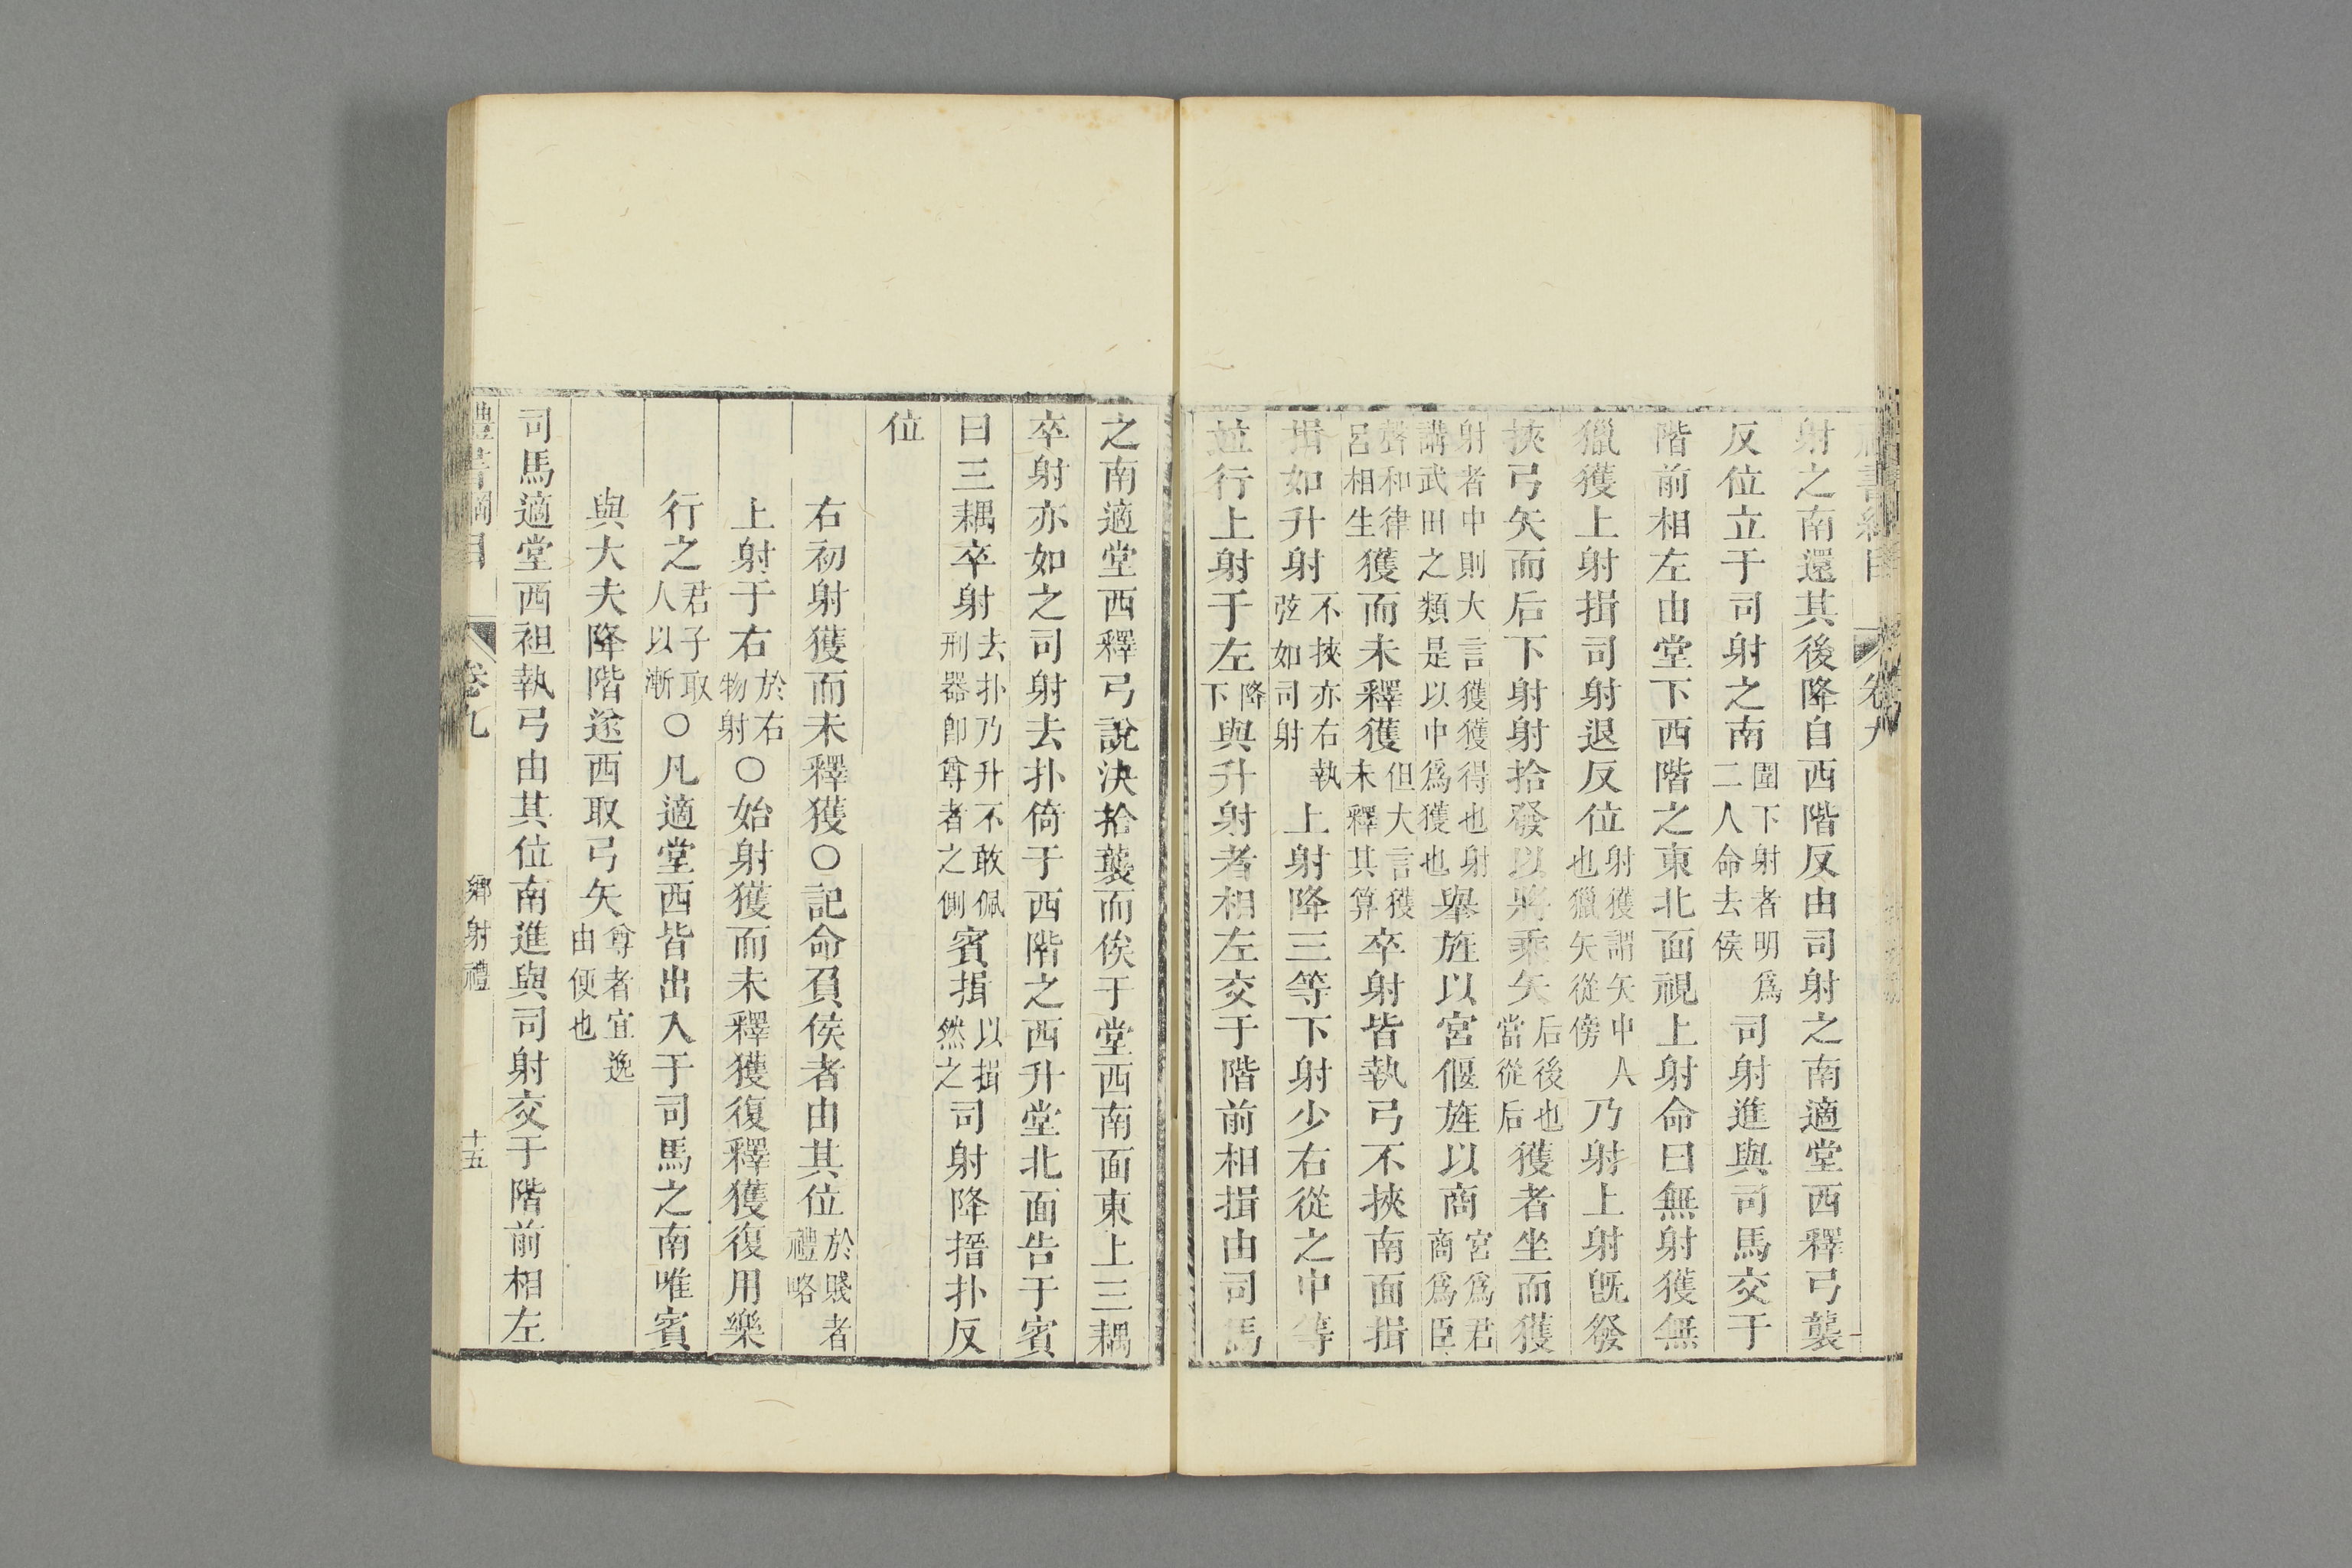 射之南還其後降自西階反由司射之南適堂西釋弓襲
反位立于司射之南圍下射者明爲二人命去侯司射進與司馬交于
階前相左由堂下西階之東北面視上射命曰無射獲無
獵獲上射揖司射退反位射獲謂矢中人也獵矢從傍乃射上射旣發
挾弓矢而后下射射拾發以將乘矢后後也當從后獲者坐而獲
射者中則大言獲獲得也射講武田之類是以中爲獲也舉旌以宮偃旌以商宮爲君商爲臣
聲和律呂相生獲而未釋獲但大言獲未釋其算卒射皆執弓不挾南面揖
揖如升射不挾亦右執弦如司射上射降三等下射少右從之中等
並行上射于左降下與升射者相左交于階前相揖由司馬
之南適堂西釋弓說決拾襲而俟于堂西南面東上三耦
卒射亦如之司射去扑倚于西階之西升堂北面告于賓
曰三耦卒射去扑乃升不敢佩刑器卽尊者之側賓揖以揖然之司射降搢扑反
位
右初射獲而未釋獲○記命負侯者由其位於賤者禮略
上射于右於右物射○始射獲而未釋獲復釋獲復用樂
行之君子取人以漸○凡適堂西皆出入于司馬之南唯賓
與大夫降階遂西取弓矢尊者宜逸由便也
司馬適堂西袒執弓由其位南進與司射交于階前相左
禮書綱目 卷九 鄉射禮 十五